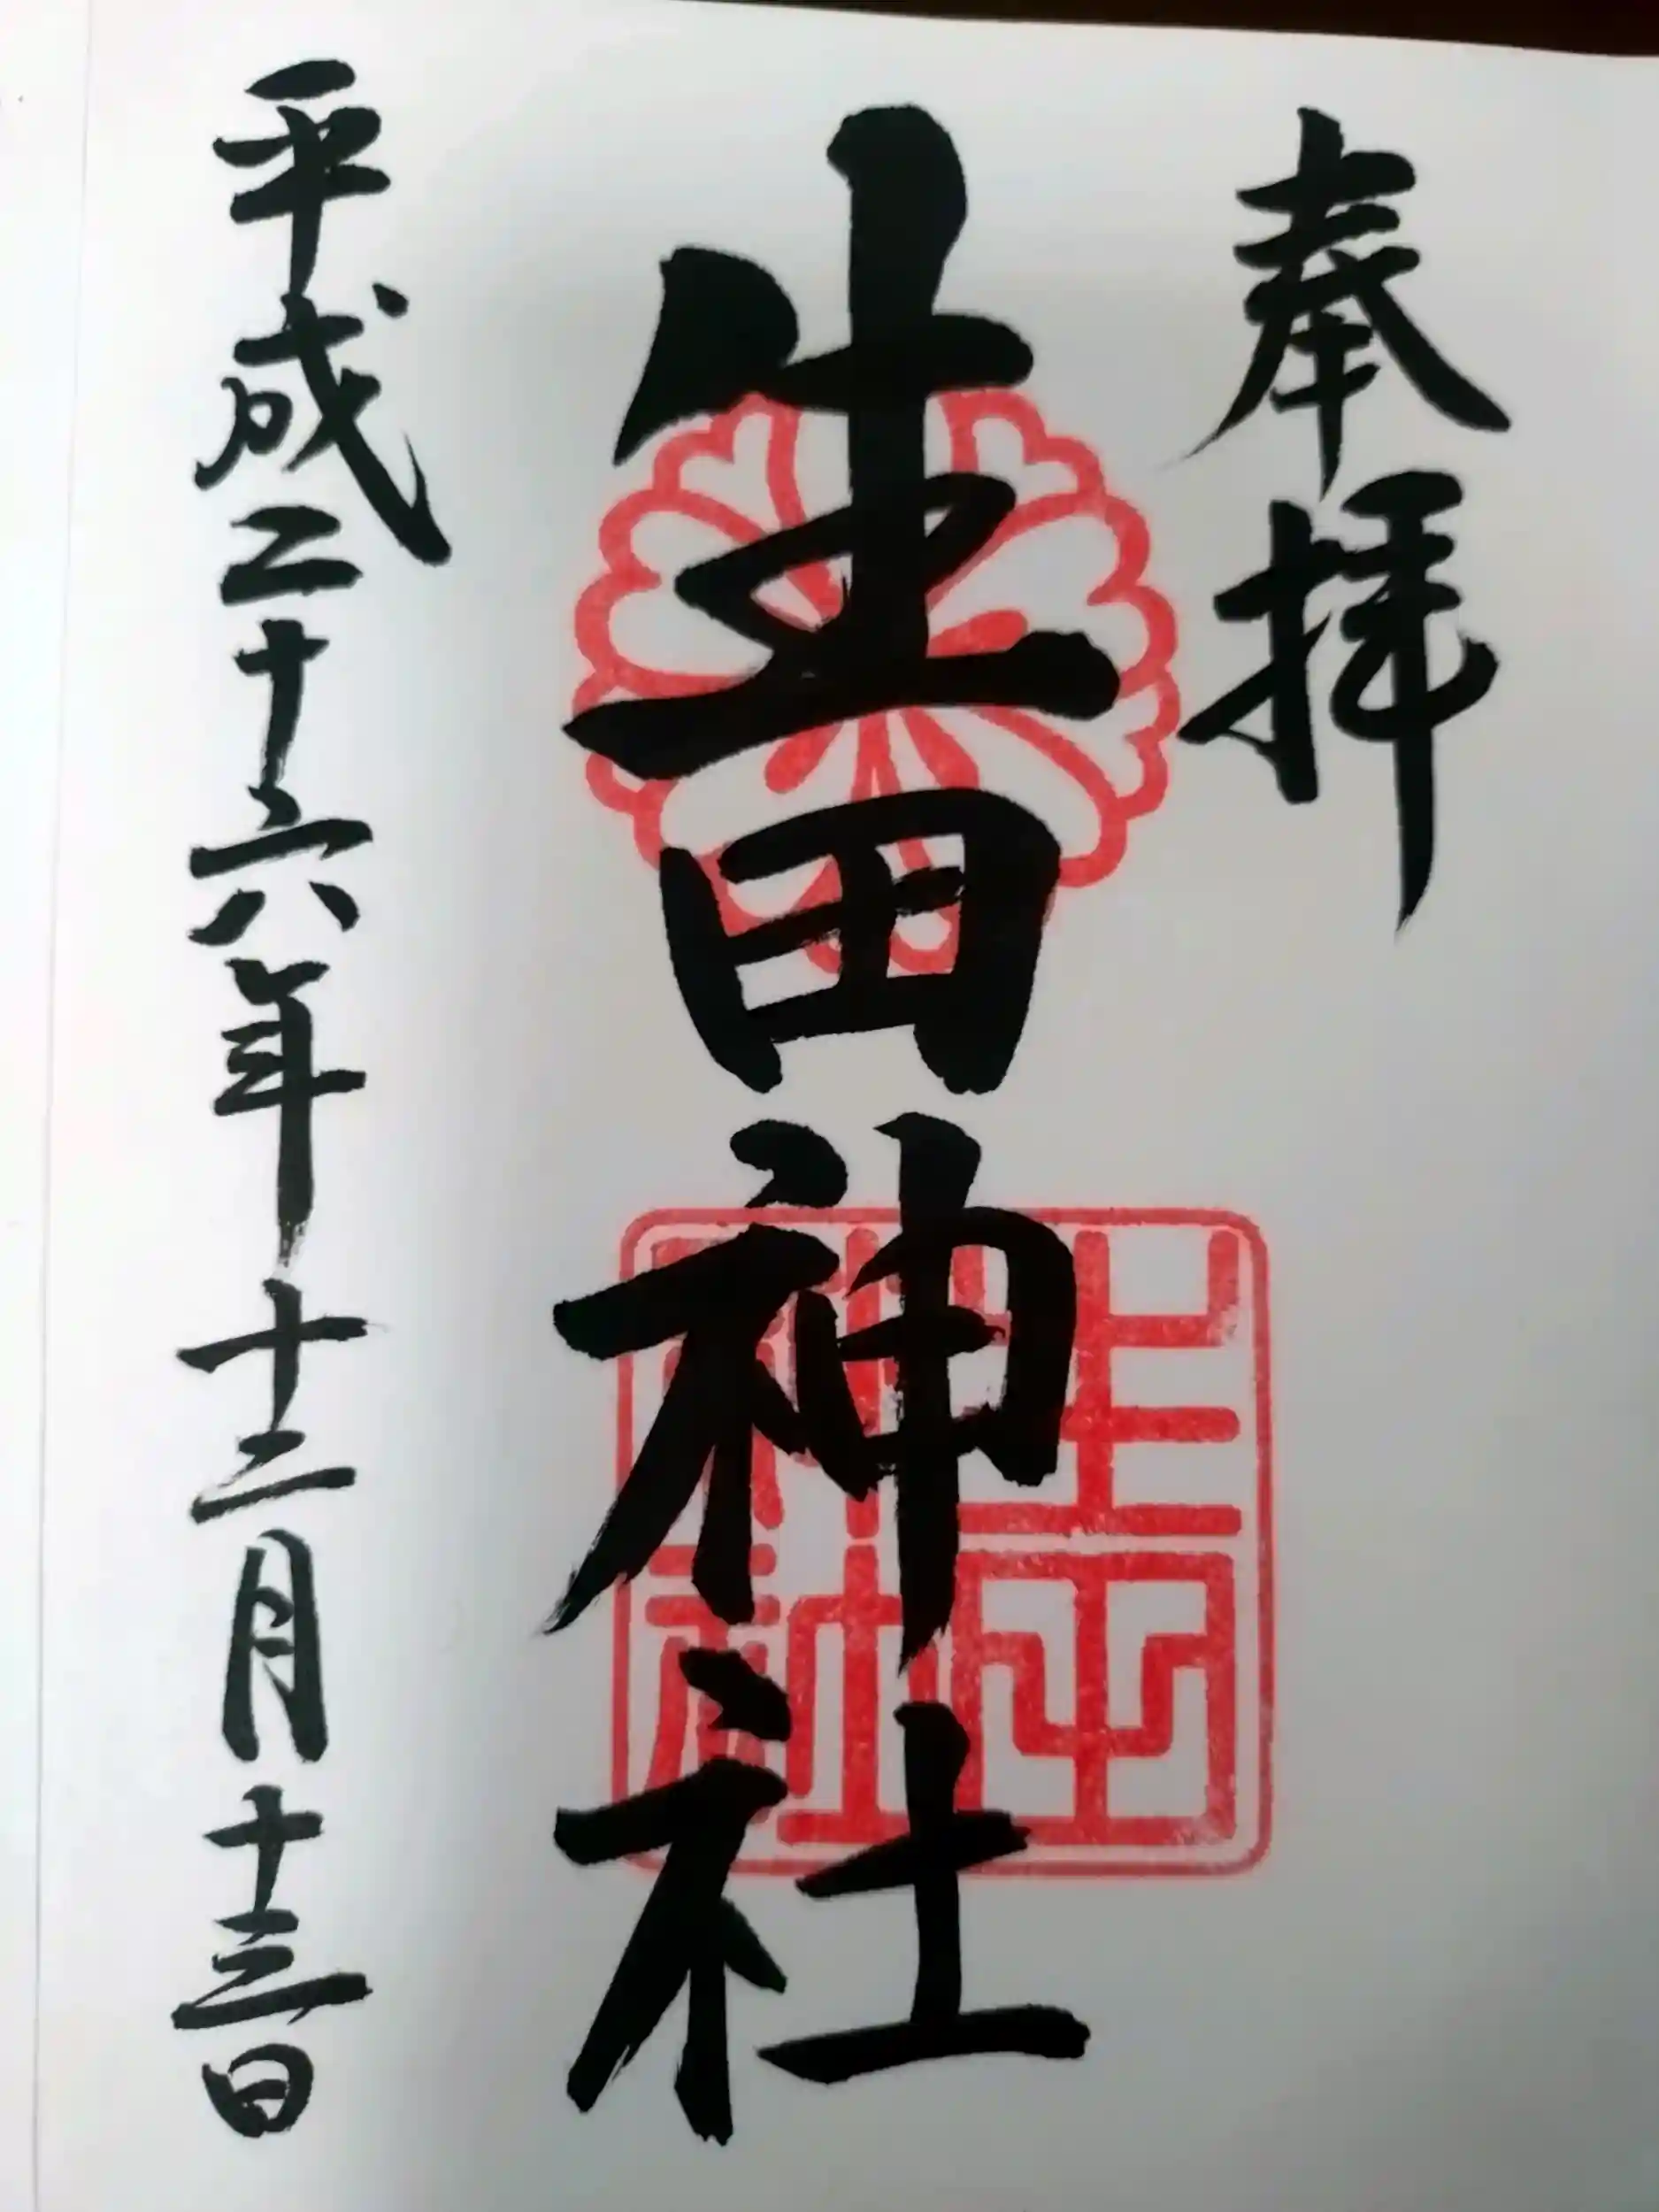 奉拝
生田神社
生田神社
平成二十六年十二月十三日